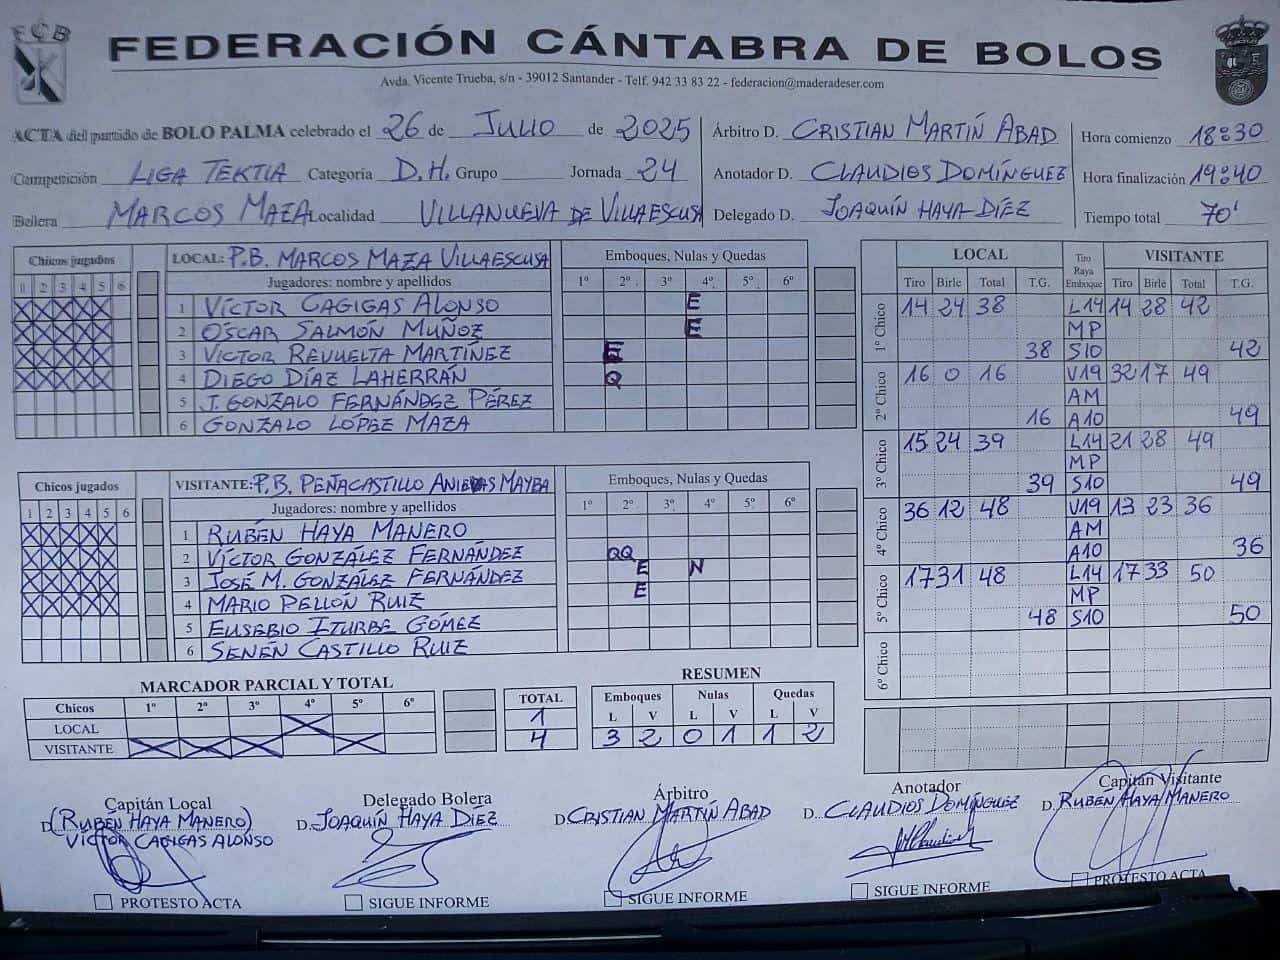 FCB
FEDERACIÓN CÁNTABRA DE BOLOS
Avda. Vicente Trueba, s/n - 39012 Santander - Telf. 942 33 83 22 - federacion@maderadeser.com
ACTA del partido de BOLO PALMA celebrado el 26 de JULIO de 2025
Competición LIGA TEKTIA Categoría D.H. Grupo Jornada 24
Bolera MARCOS MAZA Localidad VILLANUEVA DE VILLAESCUSA
Árbitro D. CRISTIAN MARTÍN ABAD
Anotador D. CLAUDIOS DOMÍNGUEZ
Delegado D. JOAQUÍN HAYA DÍEZ
Hora comienzo 18:30
Hora finalización 19:40
Tiempo total 70'
Chicos jugados LOCAL: P.B. MARCOS MAZA VILLAESCUSA Emboques, Nulas y Quedas
1 2 3 4 5 6 Jugadores: nombre y apellidos 1º 2º 3º 4º 5º 6º
X X X X X 1 VÍCTOR CAGIGAS ALONSO E
X X X X X 2 ÓSCAR SALMÓN MUÑOZ E
X X X X X 3 VICTOR REVUELTA MARTÍNEZ E
X X X X X 4 DIEGO DÍAZ LAHERRÁN Q
5 J. GONZALO FERNÁNDEZ PÉREZ
6 GONZALO LÓPEZ MAZA
Chicos jugados VISITANTE: P.B. PEÑACASTILLO ANIEVAS MAYBA Emboques, Nulas y Quedas
1 2 3 4 5 6 Jugadores: nombre y apellidos 1º 2º 3º 4º 5º 6º
X X X X X 1 RUBÉN HAYA MANERO
X X X X X 2 VÍCTOR GONZÁLEZ FERNÁNDEZ QQ
X X X X X 3 JOSÉ M. GONZÁLEZ FERNÁNDEZ E N
X X X X X 4 MARIO PELLÓN RUIZ E
5 EUSEBIO ITURBE GÓMEZ
6 SENÉN CASTILLO RUIZ
MARCADOR PARCIAL Y TOTAL
Chicos 1º 2º 3º 4º 5º 6º TOTAL
LOCAL X 1
VISITANTE X X X X 4
RESUMEN
Emboques Nulas Quedas
L V L V L V
3 2 0 1 1 2
LOCAL Tiro Raya Emboque VISITANTE
Tiro Birle Total T.G. Tiro Birle Total T.G.
1º Chico 14 24 38 L14 14 28 42
MP
38 S10 42
2º Chico 16 0 16 V19 32 17 49
AM
16 A10 49
3º Chico 15 24 39 L14 21 28 49
MP
39 S10 49
4º Chico 36 12 48 V19 13 23 36
AM
A10 36
5º Chico 17 31 48 L14 17 33 50
MP
48 S10 50
6º Chico
Capitán Local
D. (RUBÉN HAYA MANERO)
VÍCTOR CAGIGAS ALONSO
PROTESTO ACTA
Delegado Bolera
D. JOAQUÍN HAYA DÍEZ
SIGUE INFORME
Árbitro
D. CRISTIAN MARTÍN ABAD
SIGUE INFORME
Anotador
D. CLAUDIOS DOMÍNGUEZ
SIGUE INFORME
Capitán Visitante
D. RUBÉN HAYA MANERO
PROTESTO ACTA